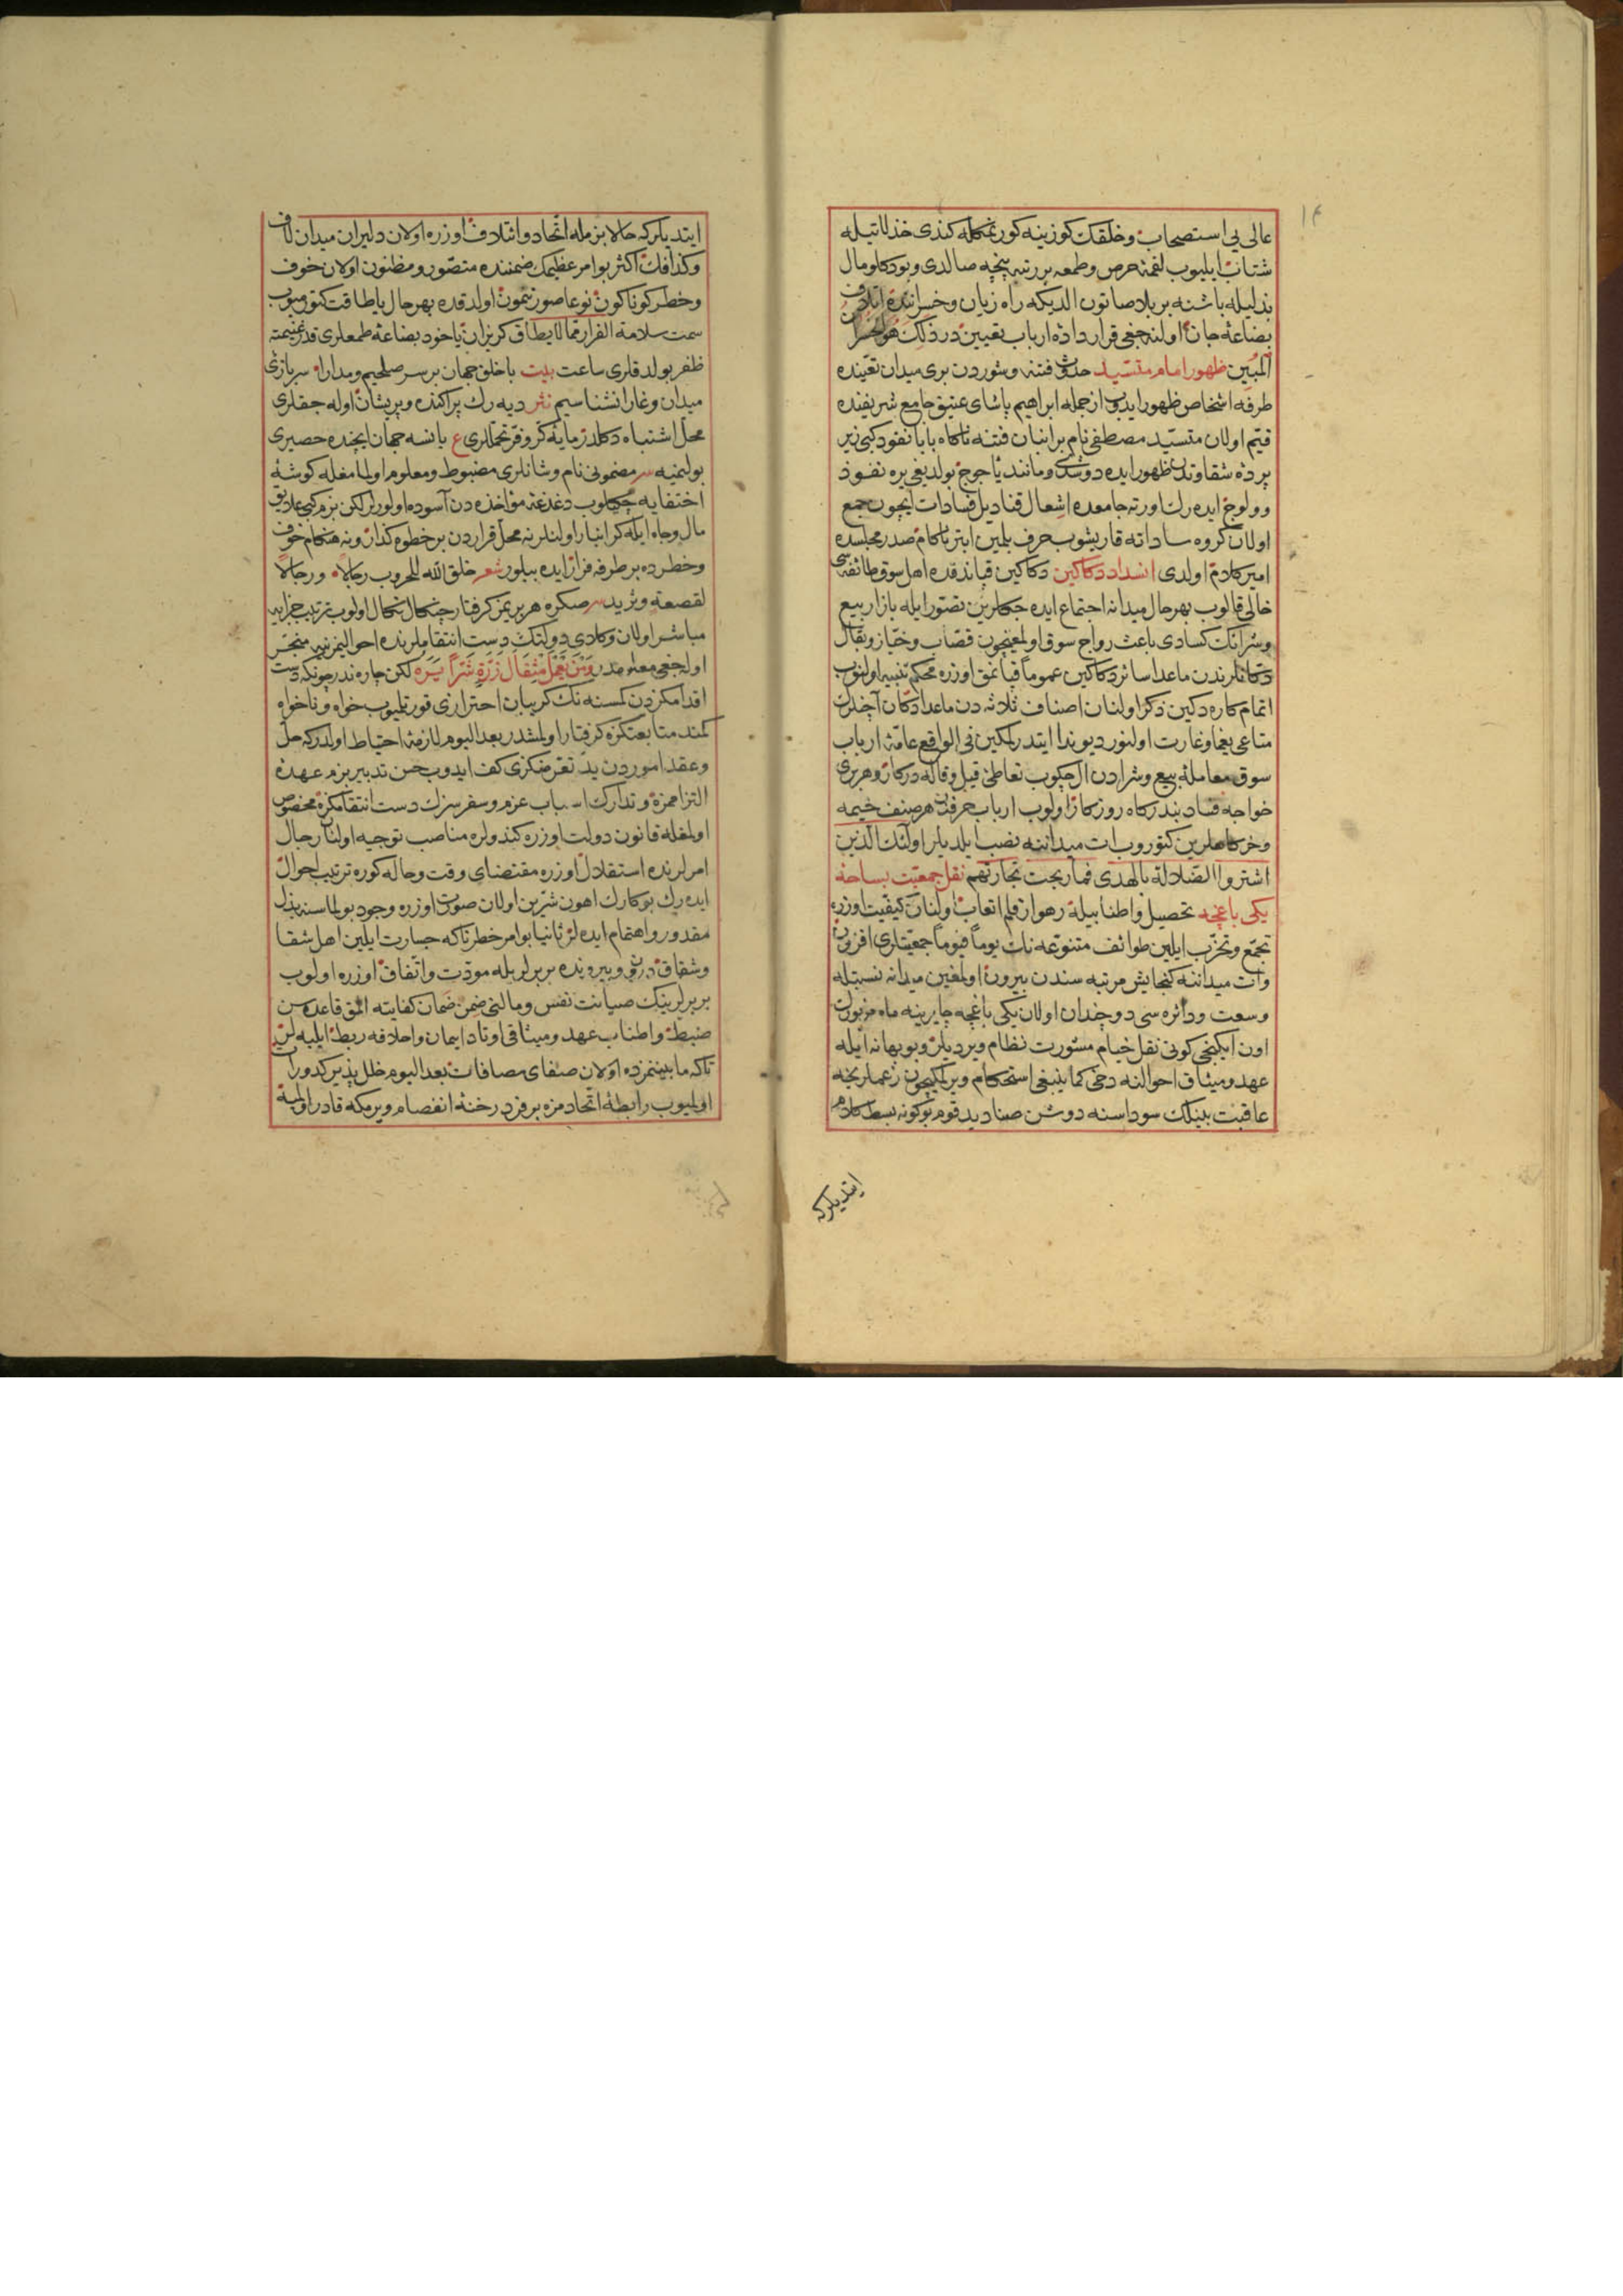 ١٤
عالی بی استصحاب و خلقك كوزینه كورنمكله كندی خذلانیله
شتاب ایلیوب لقمۀ حرص و طمعه بر رتبه پنجه صالدی و بو دكلو مال
بذلیله باشنه بر بلا صاتون الدیكه راه زیان و خسرانده اتلاف
بضاعۀ جان اولنه جغی قرار دادۀ ارباب یقیین در ذلك هو الخسران
المبین ظهور امام متسید حدوث فتنه و شوردن بری میدان تعینده
طرفه اشخاص ظهور ایدوب از جمله ابراهیم پاشای عتیق جامع شریفنده
قیم اولان متسید مصطفی نام بر انبان فتنه ناكاه بابا نفود كبی زیر
پردۀ شقاوتدن ظهور ایده دوشدی و مانند یأجوج بولدیغی یره نفوذ
و ولوج ایده رك اورته جامعده اشعال قنادیل فسادات ایچون جمع
اولان كروه ساداته قاریشوب حرف بلمین ابتر ناكام صدر مجلسده
امیر كلام اولدی انسداد دكاكین دكاكین قپاندقده اهل سوق طائفه سی
خالی قالوب بهر حال میدانه اجتماع ایده جكلرین تصور ایله بازار بیع
و شرانك كسادی باعث رواج سوق اولمغیچون قصاب و خباز و بقال
دكانلرندن ماعدا سائر دكاكین عموماً قپانمق اوزره محكم تنبیه اولنوب
اتمام كاره دكین ذكر اولنان اصناف ثلاثه دن ماعدا دكان آچنلرك
متاعی یغما و غارت اولنور دیو ندا ایتدرلمكین فی الواقع عامۀ ارباب
سوق معاملۀ بیع و شرادن ال چكوب تعاطی قیل و قاله دركار و هر بری
خواجه فساد بندركاه روزكار اولوب ارباب حرفدن هر صنف خیمه
و خركاهلرین كتوروب ات میداننه نصب ایلدیلر اولئك الذین
اشتروا الضلالة بالهدی فما ربحت تجارتهم نقل جمعیت بساحۀ
یكی باغچه تحصیل و اطنابیله رهوار قلم اتعاب اولنان كیفیت اوزره
تجمع و تحزب ایلین طوائف متنوعه نك یوماً فیوماً جمعیتلری افزون
و ات میداننه كنجایش مرتبه سندن بیرون اولمغین میدانه نسبتله
وسعت و دائره سی دو چندان اولان یكی باغچه چایرینه ماه مزبورك
اون ایكنجی كونی نقل خیام مشورت نظام ویردیلر و بو بهانه ایله
عهد و میثاق احوالنه دخی كما ینبغی استحكام ویرلمكیچون زعملرنجه
عاقبت بینلك سوداسنه دوشن صنادید قوم بو كونه بسط كلام
ایتدیلركه
ایتدیلركه حالا بزمله اتحاد و ائتلاف اوزره اولان دلیران میدان لاف
و كذافك اكثر بو امر عظیمك ضمننده متصور و مظنون اولان خوف
و خطر كوناكون نوعا صورتنمون اولدقده بهر حال یا طاقت كتورمیوب
سمت سلامة الفرار مما لا یطاق كریزان یاخود بضاعۀ طمعلری قدر غنیمته
ظفر بولدقلری ساعت بیت با خلق جهان بر سر صلحیم و مدارا سربازئ
میدان وغا را نشناسیم نثر دیه رك پراكنده و پریشان اوله جقلری
محل اشتباه دكلدر مایۀ كر و فر تجملاری ع یانسه جهان ایچنده حصیری
بولنمیه سر مضمونی نام و شانلری مضبوط و معلوم اولمامغله كوشۀ
اختفایه چكیلوب دغدغۀ مؤاخذه دن آسوده اولورلر لكن بزم كبی علایق
مال و جاه ایله كرانبار اولنلر نه محل قراردن بر خطوه كذار و نه هنكام خوف
و خطرده بر طرفه فرار ایده بیلور شعر خلق الله للحروب رجالا ورجالا
لقصعة وثرید سر صكره هر بریمز كرفتار چنكال نكال اولوب ترتیب جزایه
مباشر اولان وكلای دولتك دست انتقاملرنده احوالیمز نیه منجر
اوله جغی معلومدر ومن یعمل مثقال ذرة شراً یره لكن چاره ندر چونكه دست
اقدامكزدن كمسنه نك كریبان احترازی قورتلیوب خواه و ناخواه
كمند متابعتكزه كرفتار اولمشدر بعد الیوم لازمۀ احتیاط اولدركه حل
و عقد اموردن ید تعرضكزی كف ایدوب حسن تدبیر بزم عهدۀ
التزاممزه و تدارك اسباب عزم و سفر سزك دست انتقامكزه مخصوص
اولمغله قانون دولت اوزره كندولره مناصب توجیه اولنان رجال
امرلرنده استقلال اوزره مقتضای وقت و حاله كوره ترتیب احوال
ایده رك بو كارك اهون شرین اولان صورت اوزره وجود بولماسنه بذل
مقدور و اهتمام ایده لر ثانیا بو امر خطرناكه جسارت ایلین اهل شقا
و شقاق درون و بیرونده بربرلریله مودت و اتفاق اوزره اولوب
بربرلرینك صیانت نفس و مالنی ضمن ضمان كفایته المق قاعده سن
ضبط و اطناب عهد و میثاقی اوتاد ایمان و احلافه ربط ایلیه لر
تاكه مابینمزده اولان صفای مصافات بعد الیوم خلل پذیر كدورات
اولمیوب رابطۀ اتحادمزه بر فرد رخنۀ انفصام ویرمكه قادر اولمیه